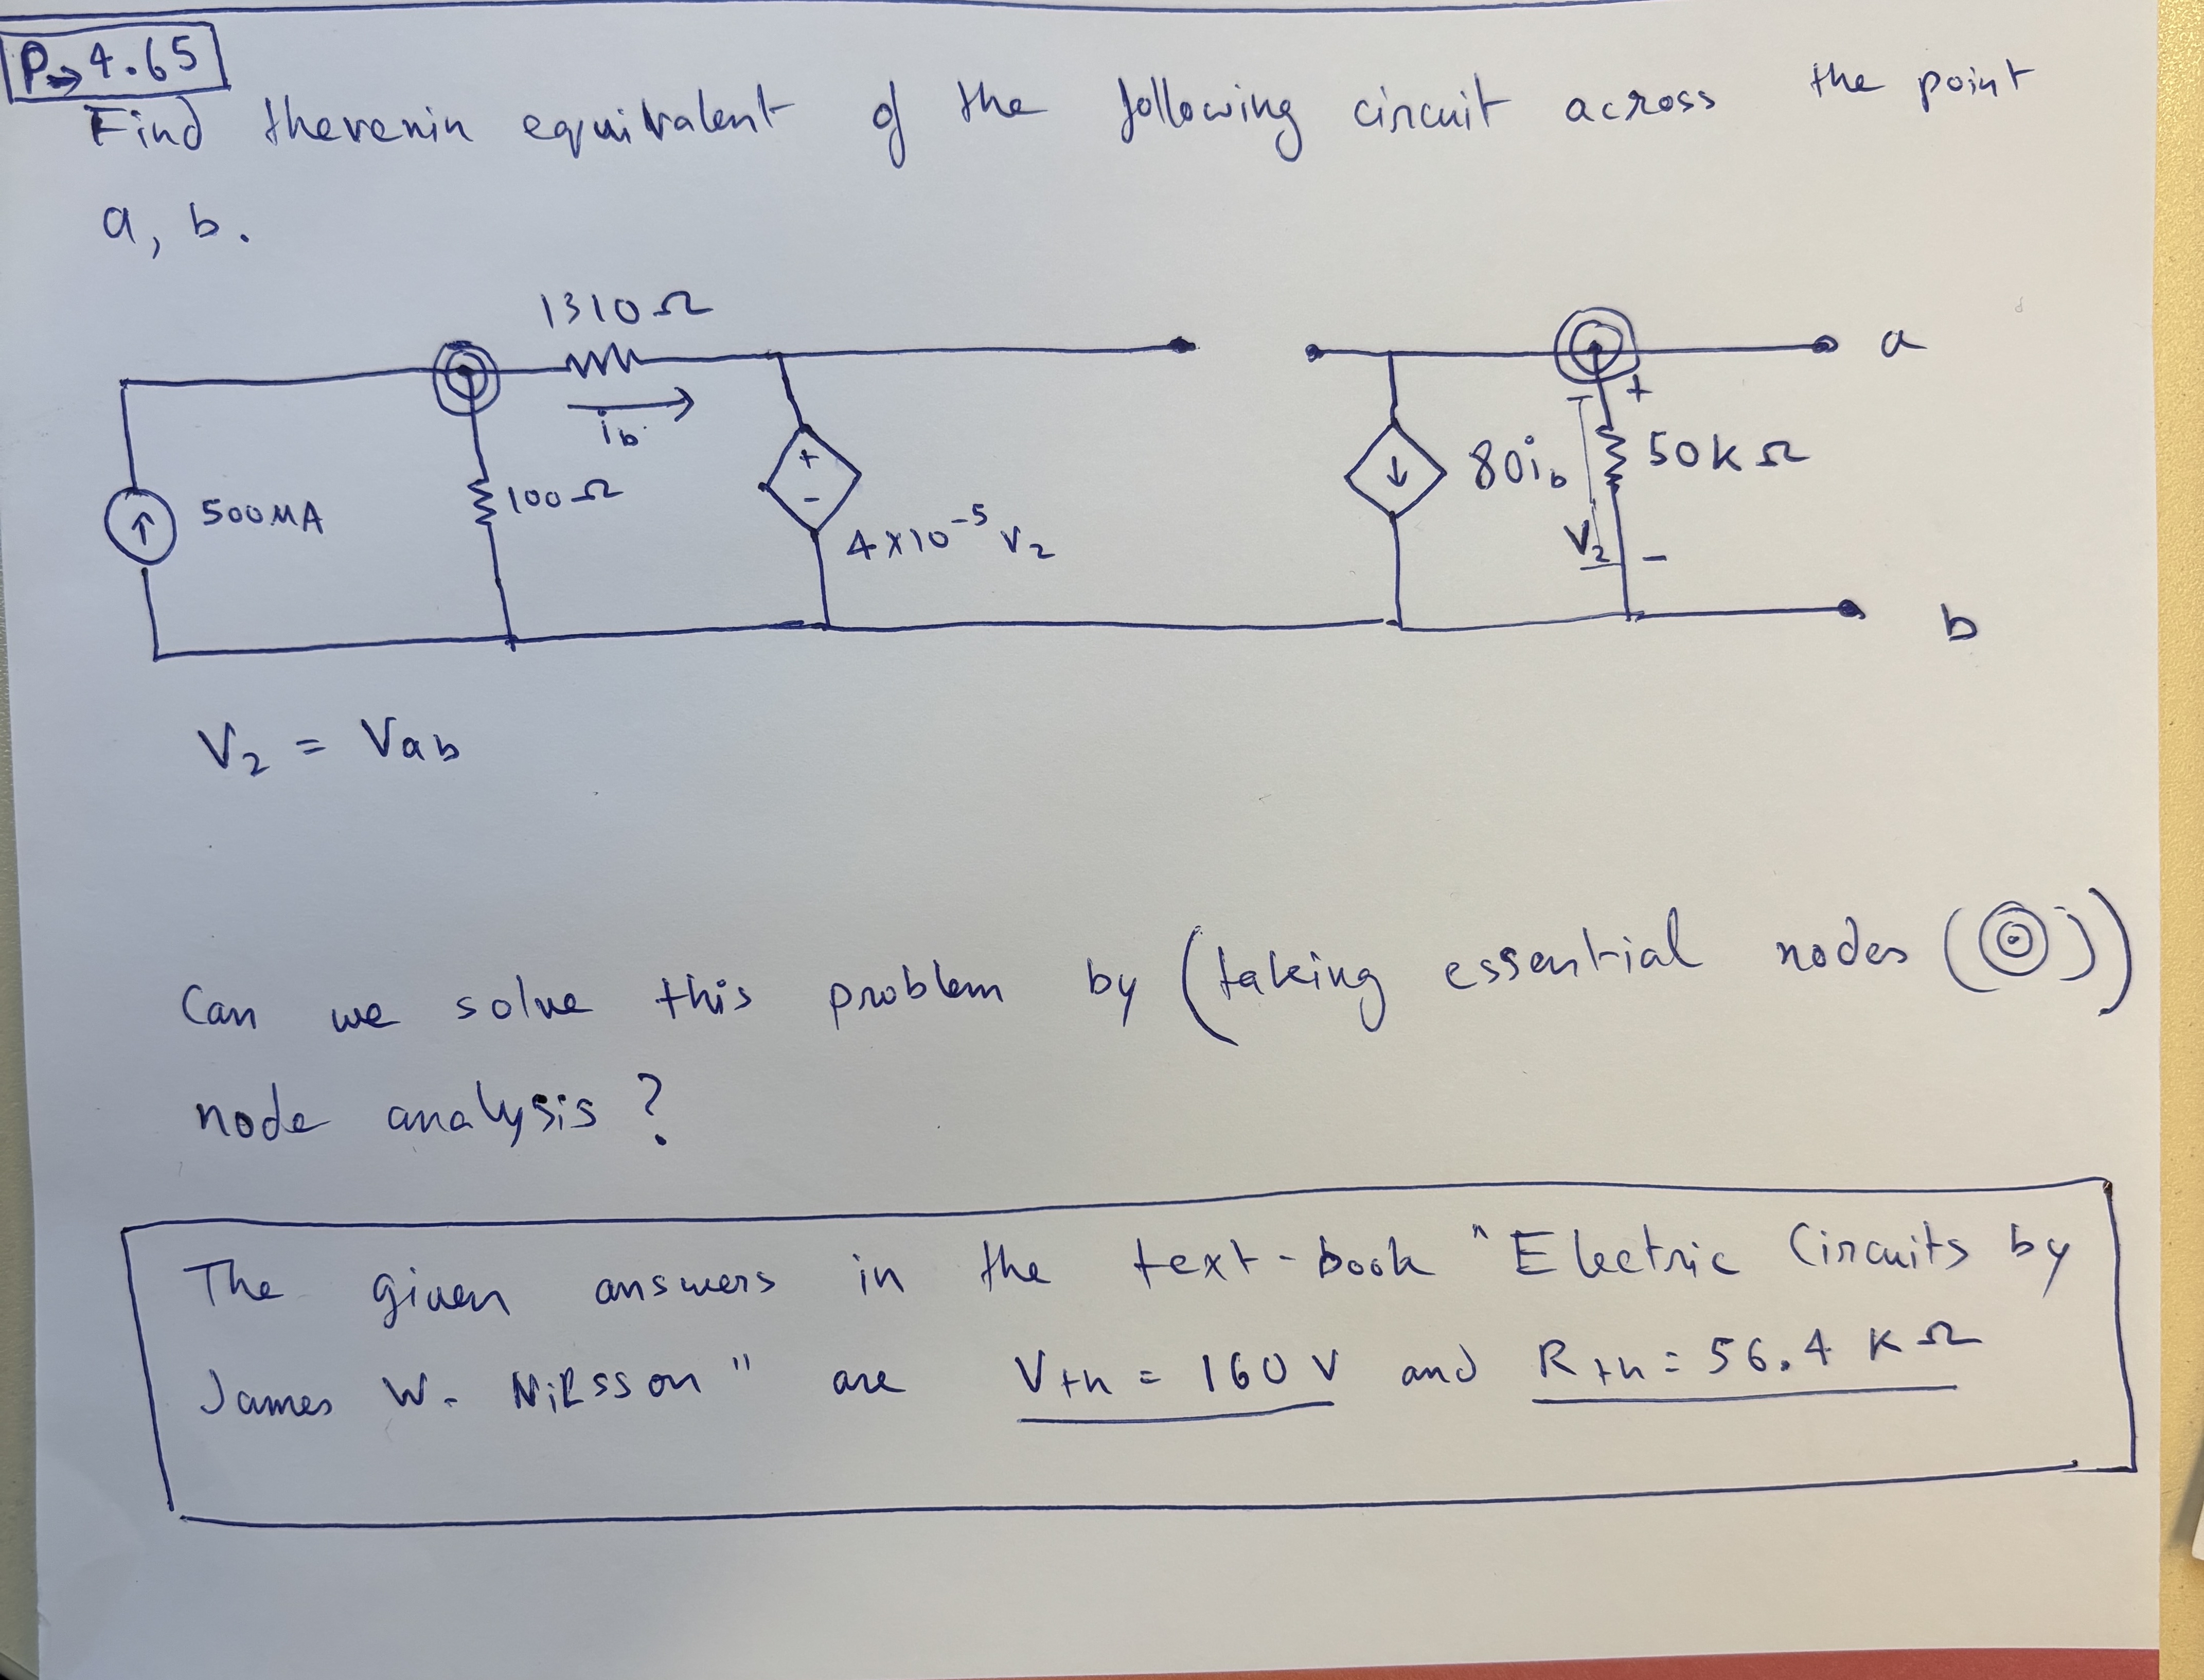 P→4.65
Find thevenin equivalent of the following circuit across the point
a, b.
1310Ω
ib
500MA
100Ω
+
-
4×10⁻⁵ V₂
80ib
+
50kΩ
V₂
-
a
b
V₂ = Vab
Can we solve this problem by (taking essential nodes (◎))
node analysis?
The given answers in the text-book "Electric Circuits by
James W. Nilsson" are Vth = 160 V and Rth = 56.4 KΩ